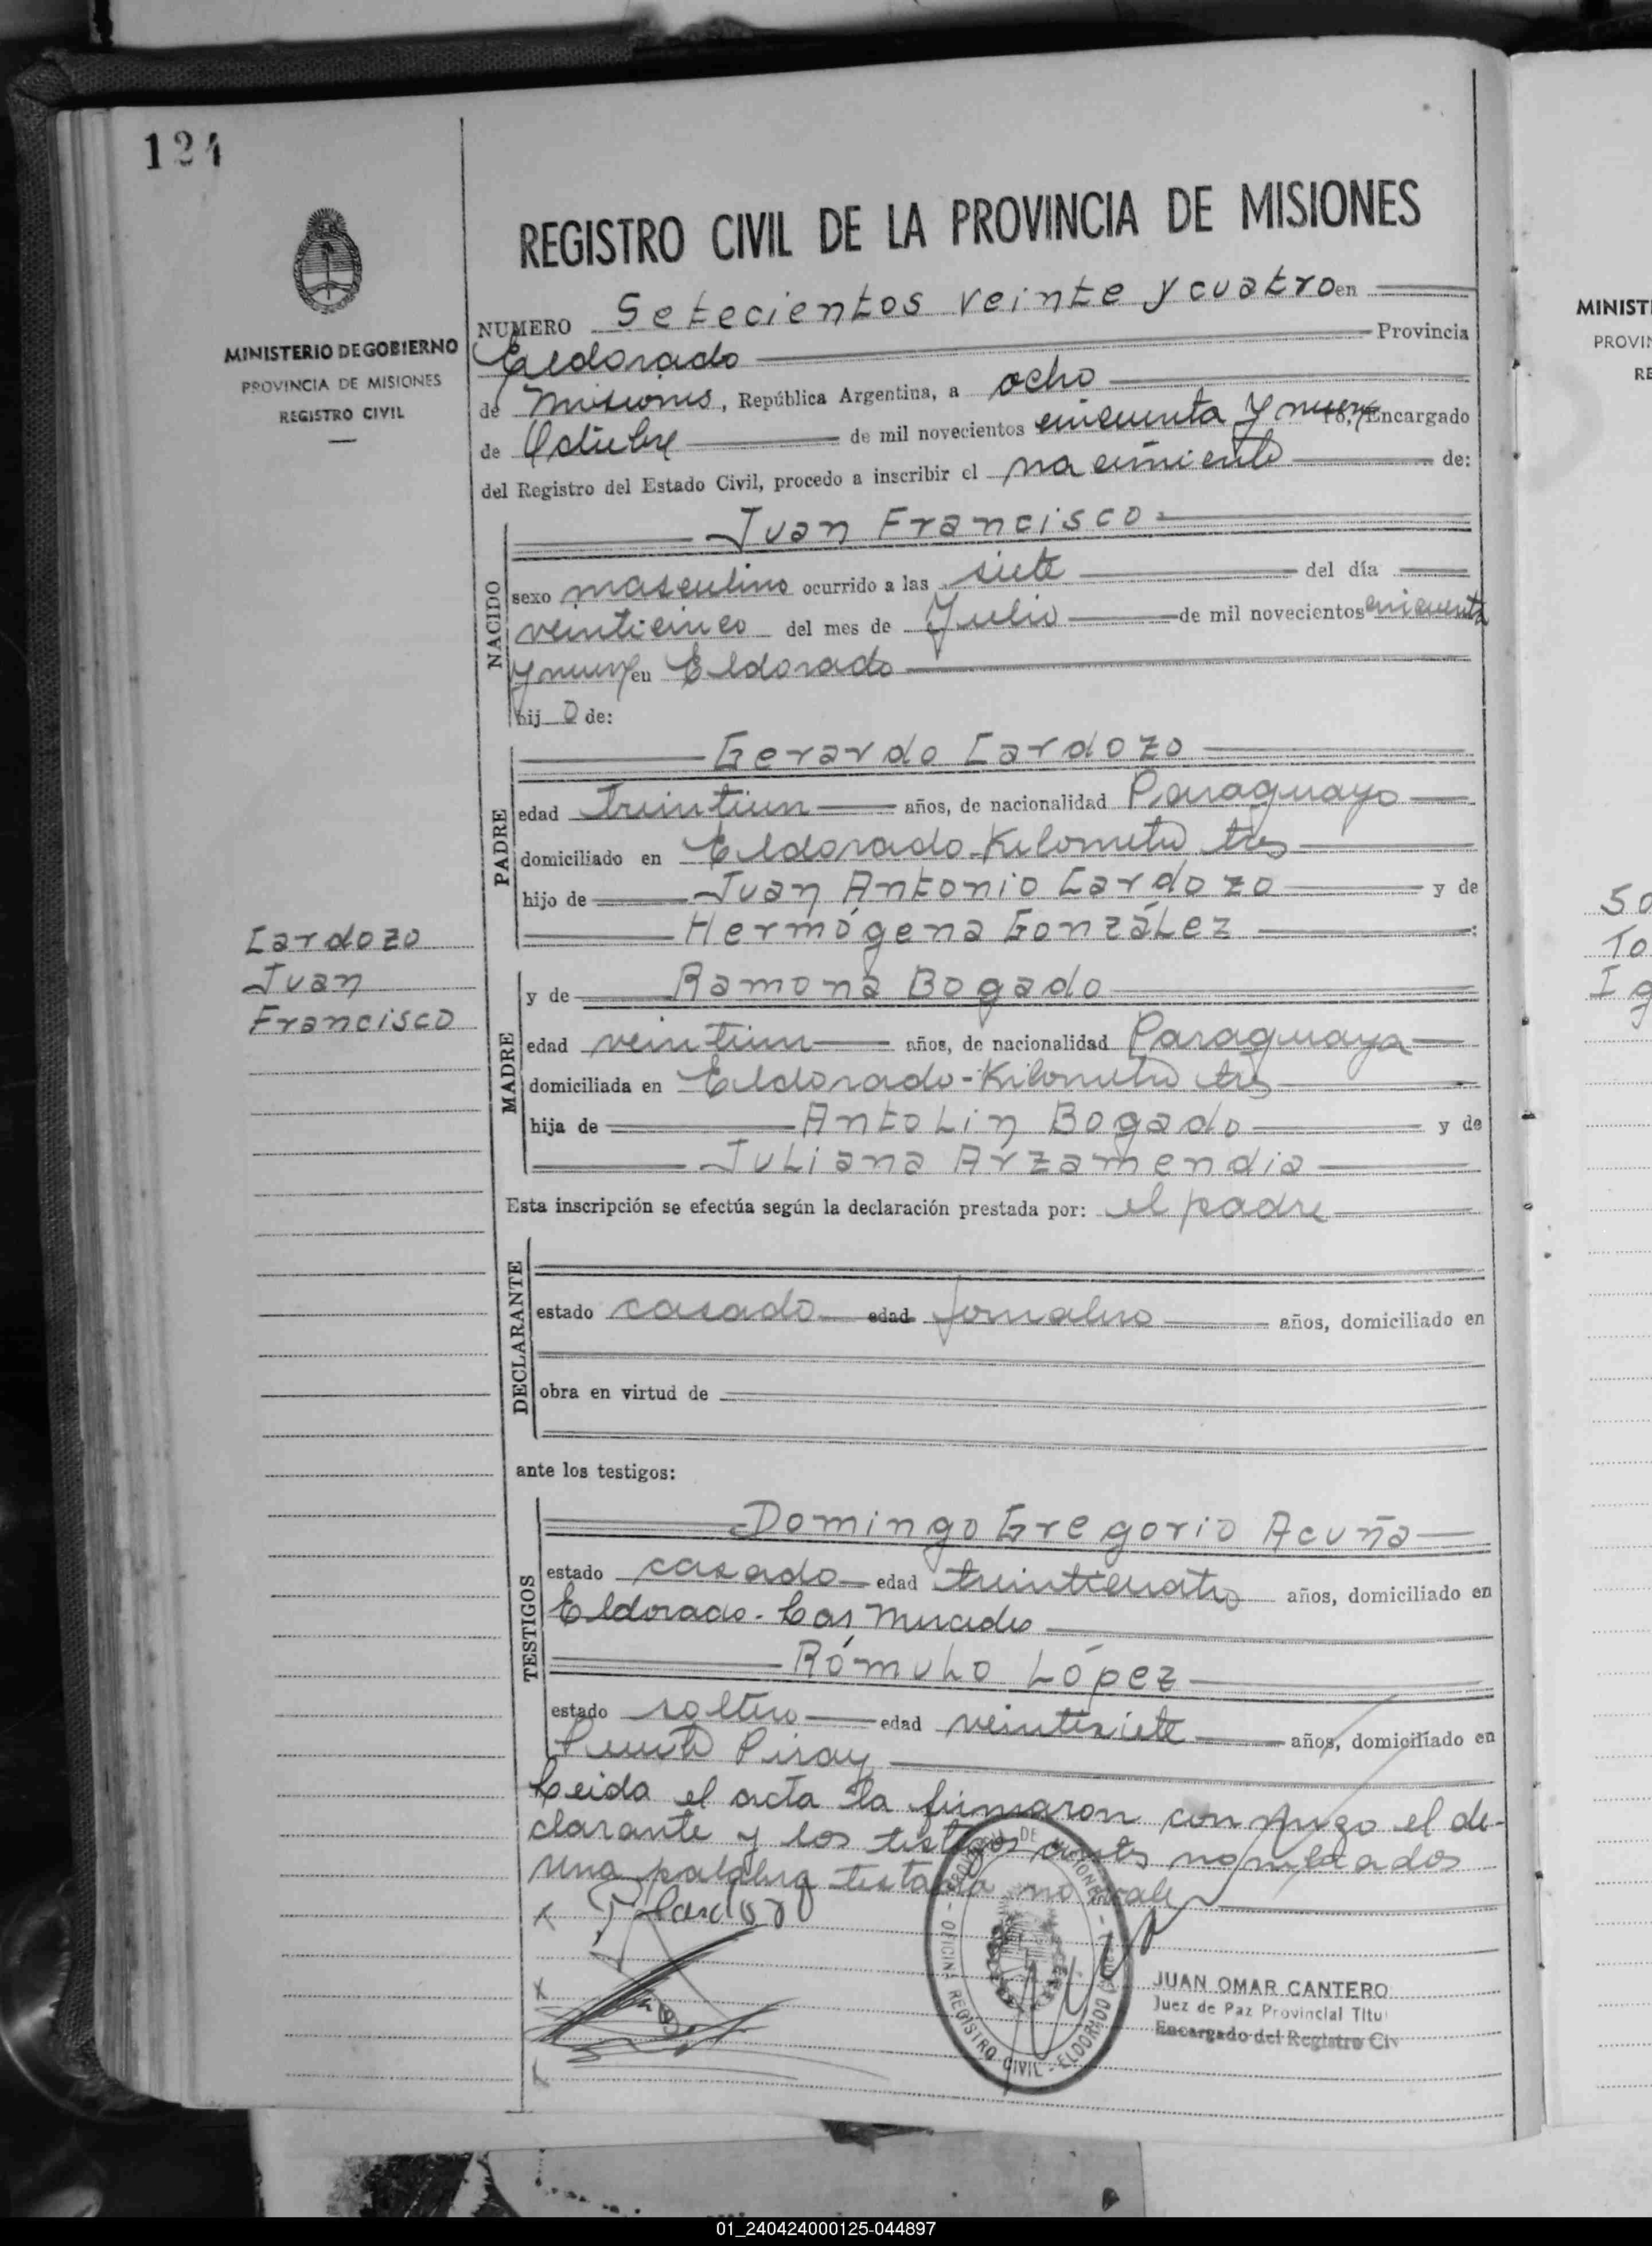 124
REGISTRO CIVIL DE LA PROVINCIA DE MISIONES
MINISTERIO DE GOBIERNO
PROVINCIA DE MISIONES
REGISTRO CIVIL
NUMERO Setecientos veinte y cuatro en
Eldorado Provincia
de Misiones, República Argentina, a ocho
de Octubre de mil novecientos cincuenta y nueve Encargado
del Registro del Estado Civil, procedo a inscribir el nacimiento de:
NACIDO
Juan Francisco
sexo masculino ocurrido a las siete del día
veinticinco del mes de Julio de mil novecientos cincuenta
y nueve en Eldorado
hij o de:
PADRE
Gerardo Cardozo
edad treintiun años, de nacionalidad Paraguayo
domiciliado en Eldorado-Kilometro tres
hijo de Juan Antonio Cardozo y de
Hermógena González
Cardozo
Juan
Francisco
MADRE
y de Ramona Bogado
edad veintiun años, de nacionalidad Paraguaya
domiciliada en Eldorado-Kilometro tres
hija de Antolin Bogado y de
Juliana Arzamendia
Esta inscripción se efectúa según la declaración prestada por: el padre
DECLARANTE
estado casado edad jornalero años, domiciliado en
obra en virtud de
ante los testigos:
TESTIGOS
Domingo Gregorio Acuña
estado casado edad treinticuatro años, domiciliado en
Eldorado-Las Mercedes
Rómulo López
estado soltero edad veintisiete años, domiciliado en
Puerto Piray
Leida el acta la firmaron conmigo el de-
clarante y los testigos antes nombrados
una palabra testada no vale
x Cardozo
x
x
PROVINCIA DE MISIONES
OFICINA REGISTRO CIVIL - ELDORADO
JUAN OMAR CANTERO
Juez de Paz Provincial Titu
Encargado del Registro Civ
MINIST
PROVIN
RE
So
To
Ig
01_240424000125-044897